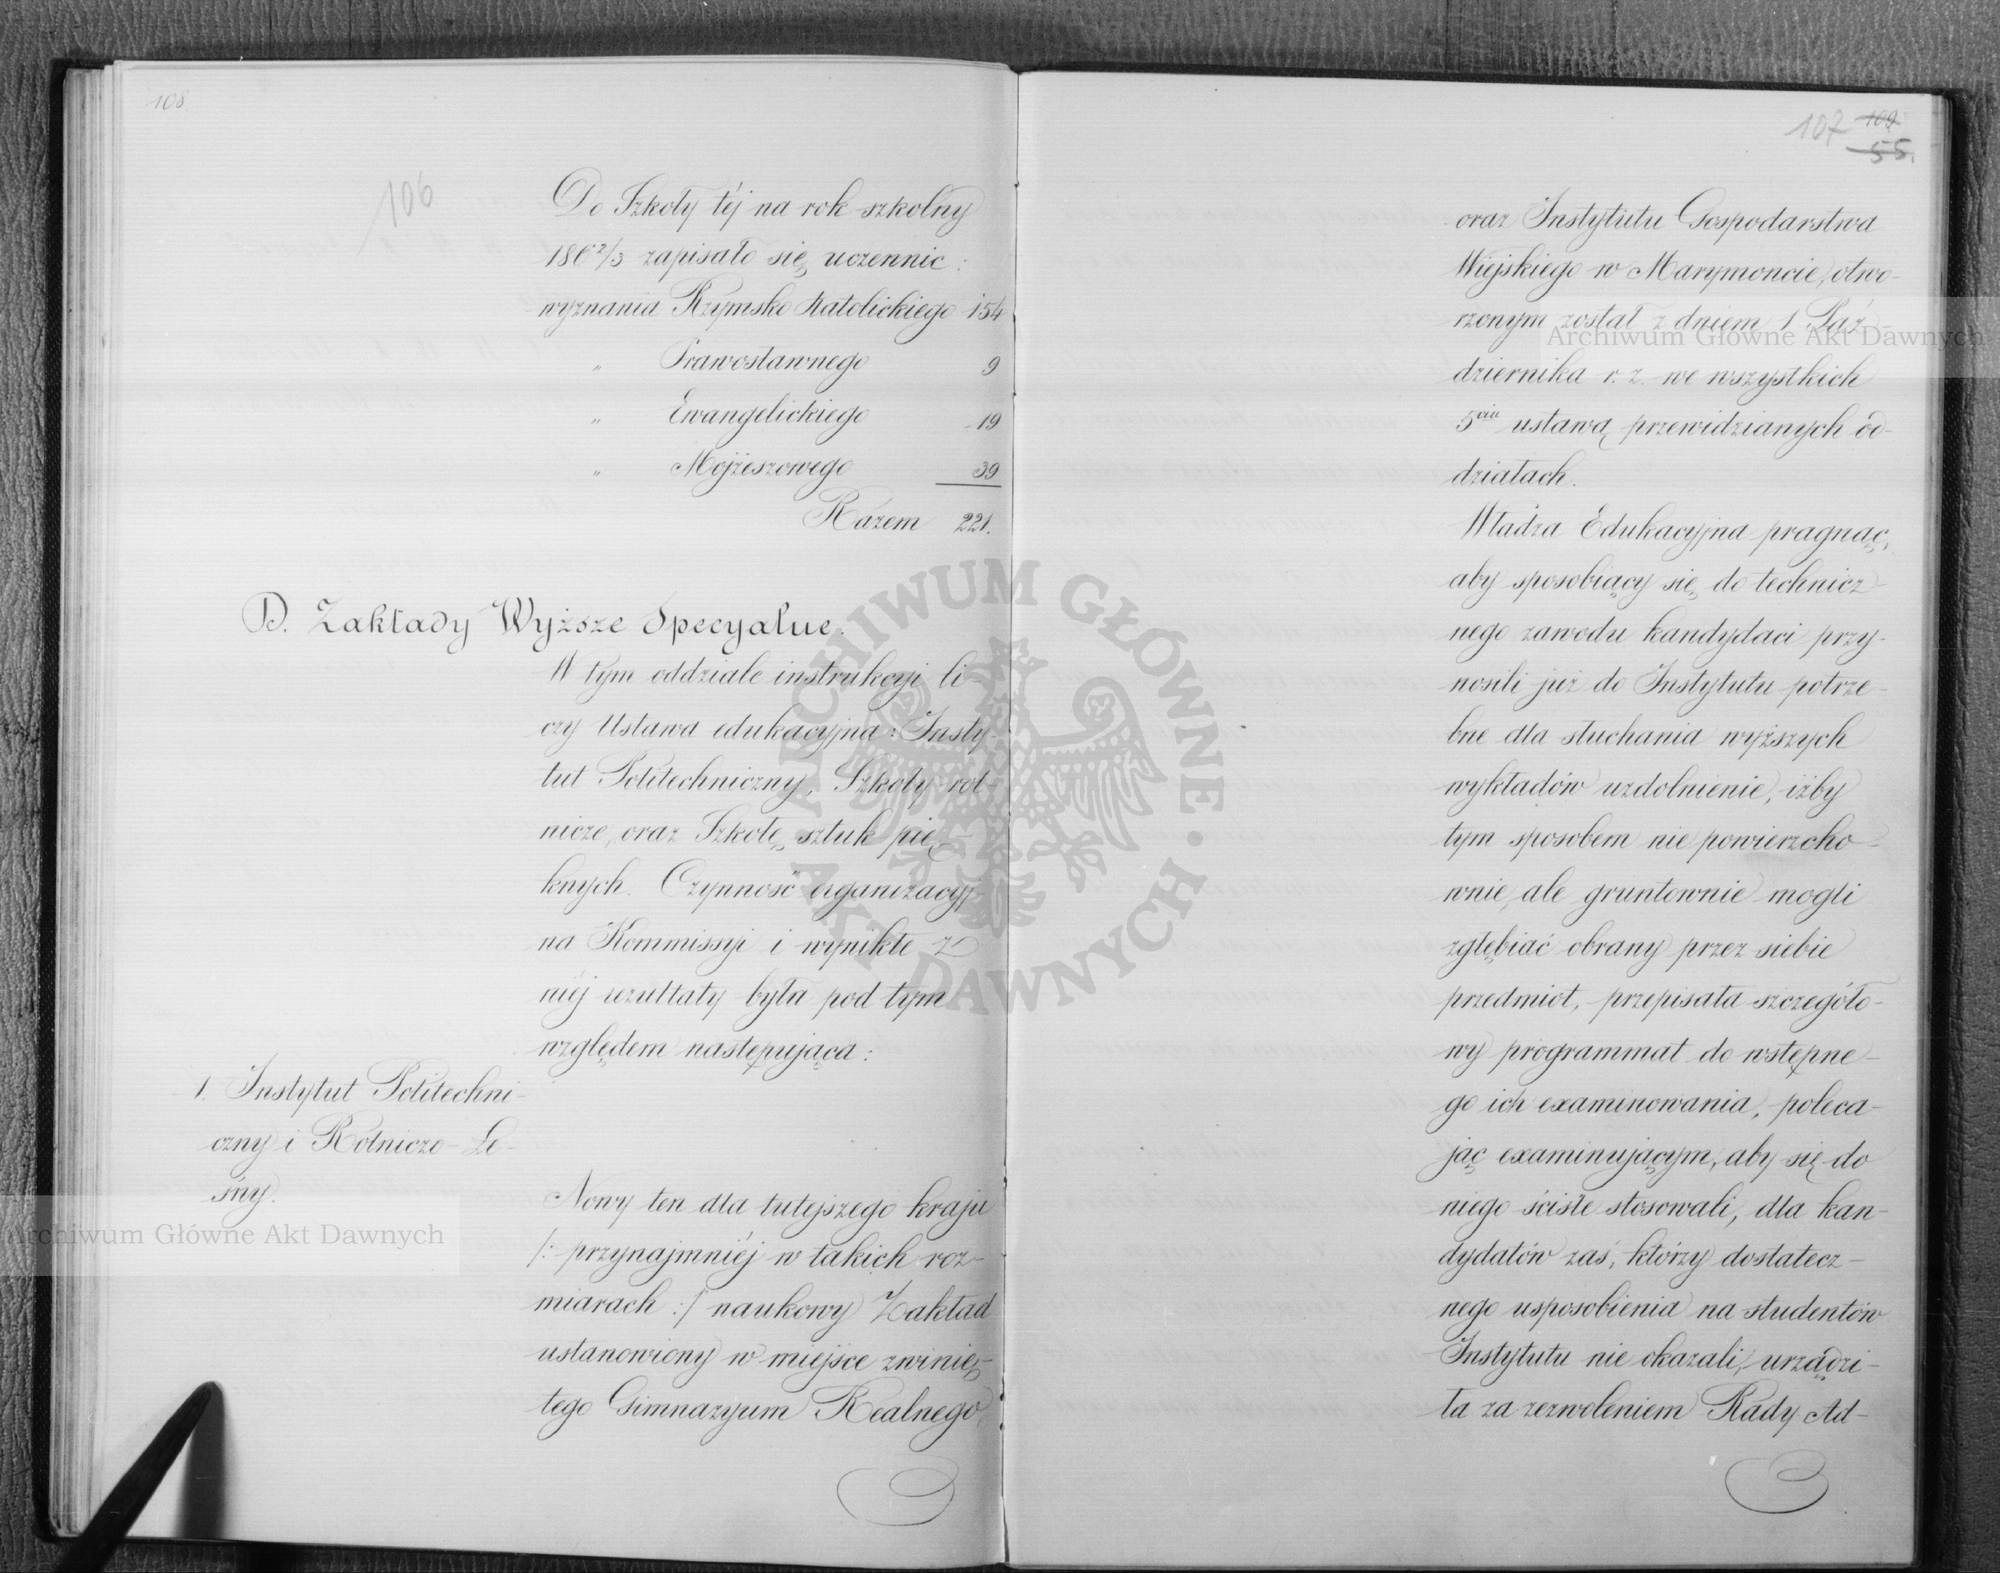 108
106
Do Szkoły téj na rok szkolny
186 2/3 zapisało się uczennic:
wyznania Rzymsko Katolickiego 154
" Prawosławnego 9
" Ewangelickiego 19
" Mojżeszowego 39
Razem 221.
D. Zakłady Wyższe Specyalne.
W tym oddziale instrukcyi li-
czy Ustawa edukacyjna: Insty-
tut Politechniczny, Szkoły rol-
nicze, oraz Szkołę sztuk pię-
knych. Czynność organizacyj-
na Kommissyi i wynikłe z
niéj rezultaty była pod tym
względem następująca:
1. Instytut Politechni-
czny i Rolniczo-Le-
śny.
Nowy ten dla tutejszego kraju
/: przynajmniéj w takich roz-
miarach :/ naukowy Zakład
ustanowiony w miejsce zwinię-
tego Gimnazyum Realnego
107 109
55.
oraz Instytutu Gospodarstwa
Wiejskiego w Marymoncie, otwo-
rzonym został z dniem 1 Paź-
dziernika r. z. we wszystkich
5ciu ustawą przewidzianych od-
działach.
Władza Edukacyjna pragnąc,
aby sposobiący się do technicz-
nego zawodu kandydaci przy-
nosili już do Instytutu potrze-
bne dla słuchania wyższych
wykładów uzdolnienie, iżby
tym sposobem nie powierzcho-
wnie, ale gruntownie mogli
zgłębiać obrany przez siebie
przedmiot, przepisała szczegóło-
wy programmat do wstępne-
go ich examinowania, poleca-
jąc examinującym, aby się do
niego ściśle stosowali, dla kan-
dydatów zaś, którzy dostatecz-
nego usposobienia na studentów
Instytutu nie okazali, urządzi-
ła za zezwoleniem Rady Ad-
Archiwum Główne Akt Dawnych
Archiwum Główne Akt Dawnych
ARCHIWUM GŁÓWNE · AKT DAWNYCH ·